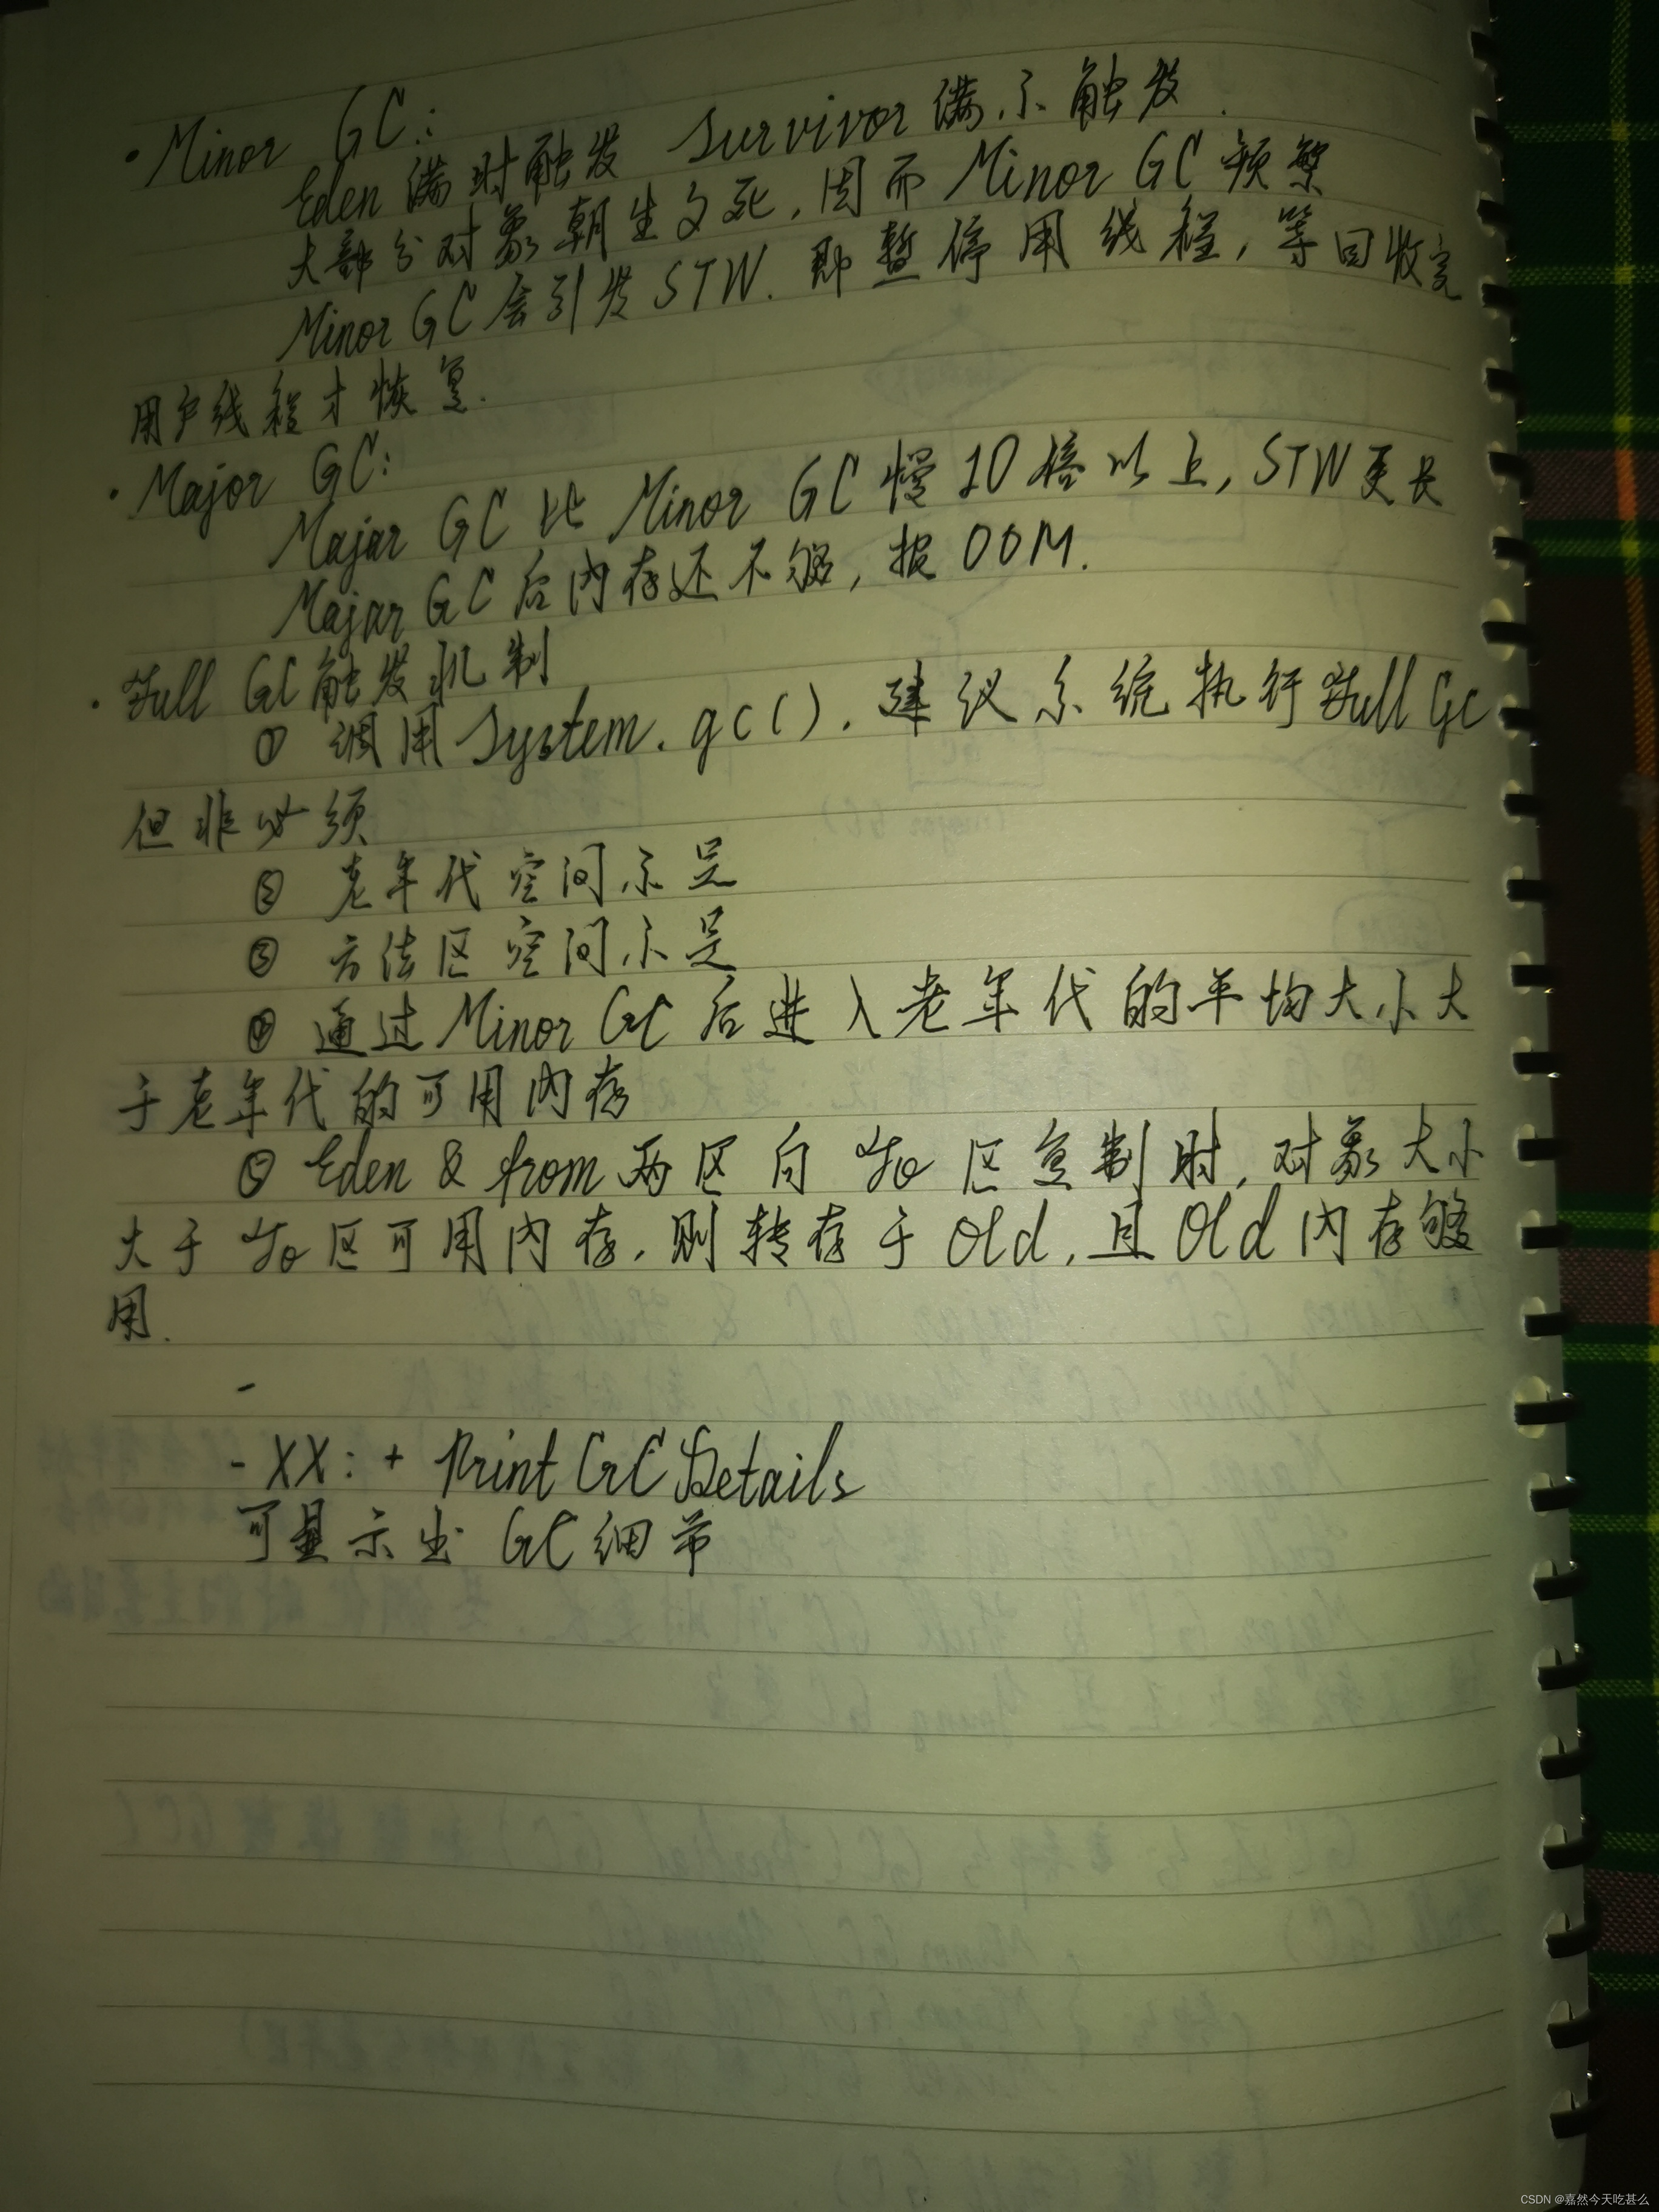 · Minor GC:
Eden 满时触发 Survivor 满不触发.
大部分对象朝生夕死,因而 Minor GC 频繁
Minor GC 会引发 STW. 即暂停用线程,等回收完
用户线程才恢复.
· Major GC:
Majar GC 比 Minor GC 慢 10 倍以上, STW 更长
Majar GC 后内存还不够, 报 OOM.
· Full GC 触发机制
① 调用 System.gc(). 建议系统执行 Full GC
但非必须
② 老年代空间不足
③ 方法区空间不足
④ 通过 Minor GC 后进入老年代的平均大小大
于老年代的可用内存
⑤ Eden & from 两区向 To 区复制时, 对象大小
大于 To 区可用内存, 则转存于 Old, 且 Old 内存够
用.
-
-XX:+ Print GC Details
可显示出 GC 细节
CSDN @嘉然今天吃甚么